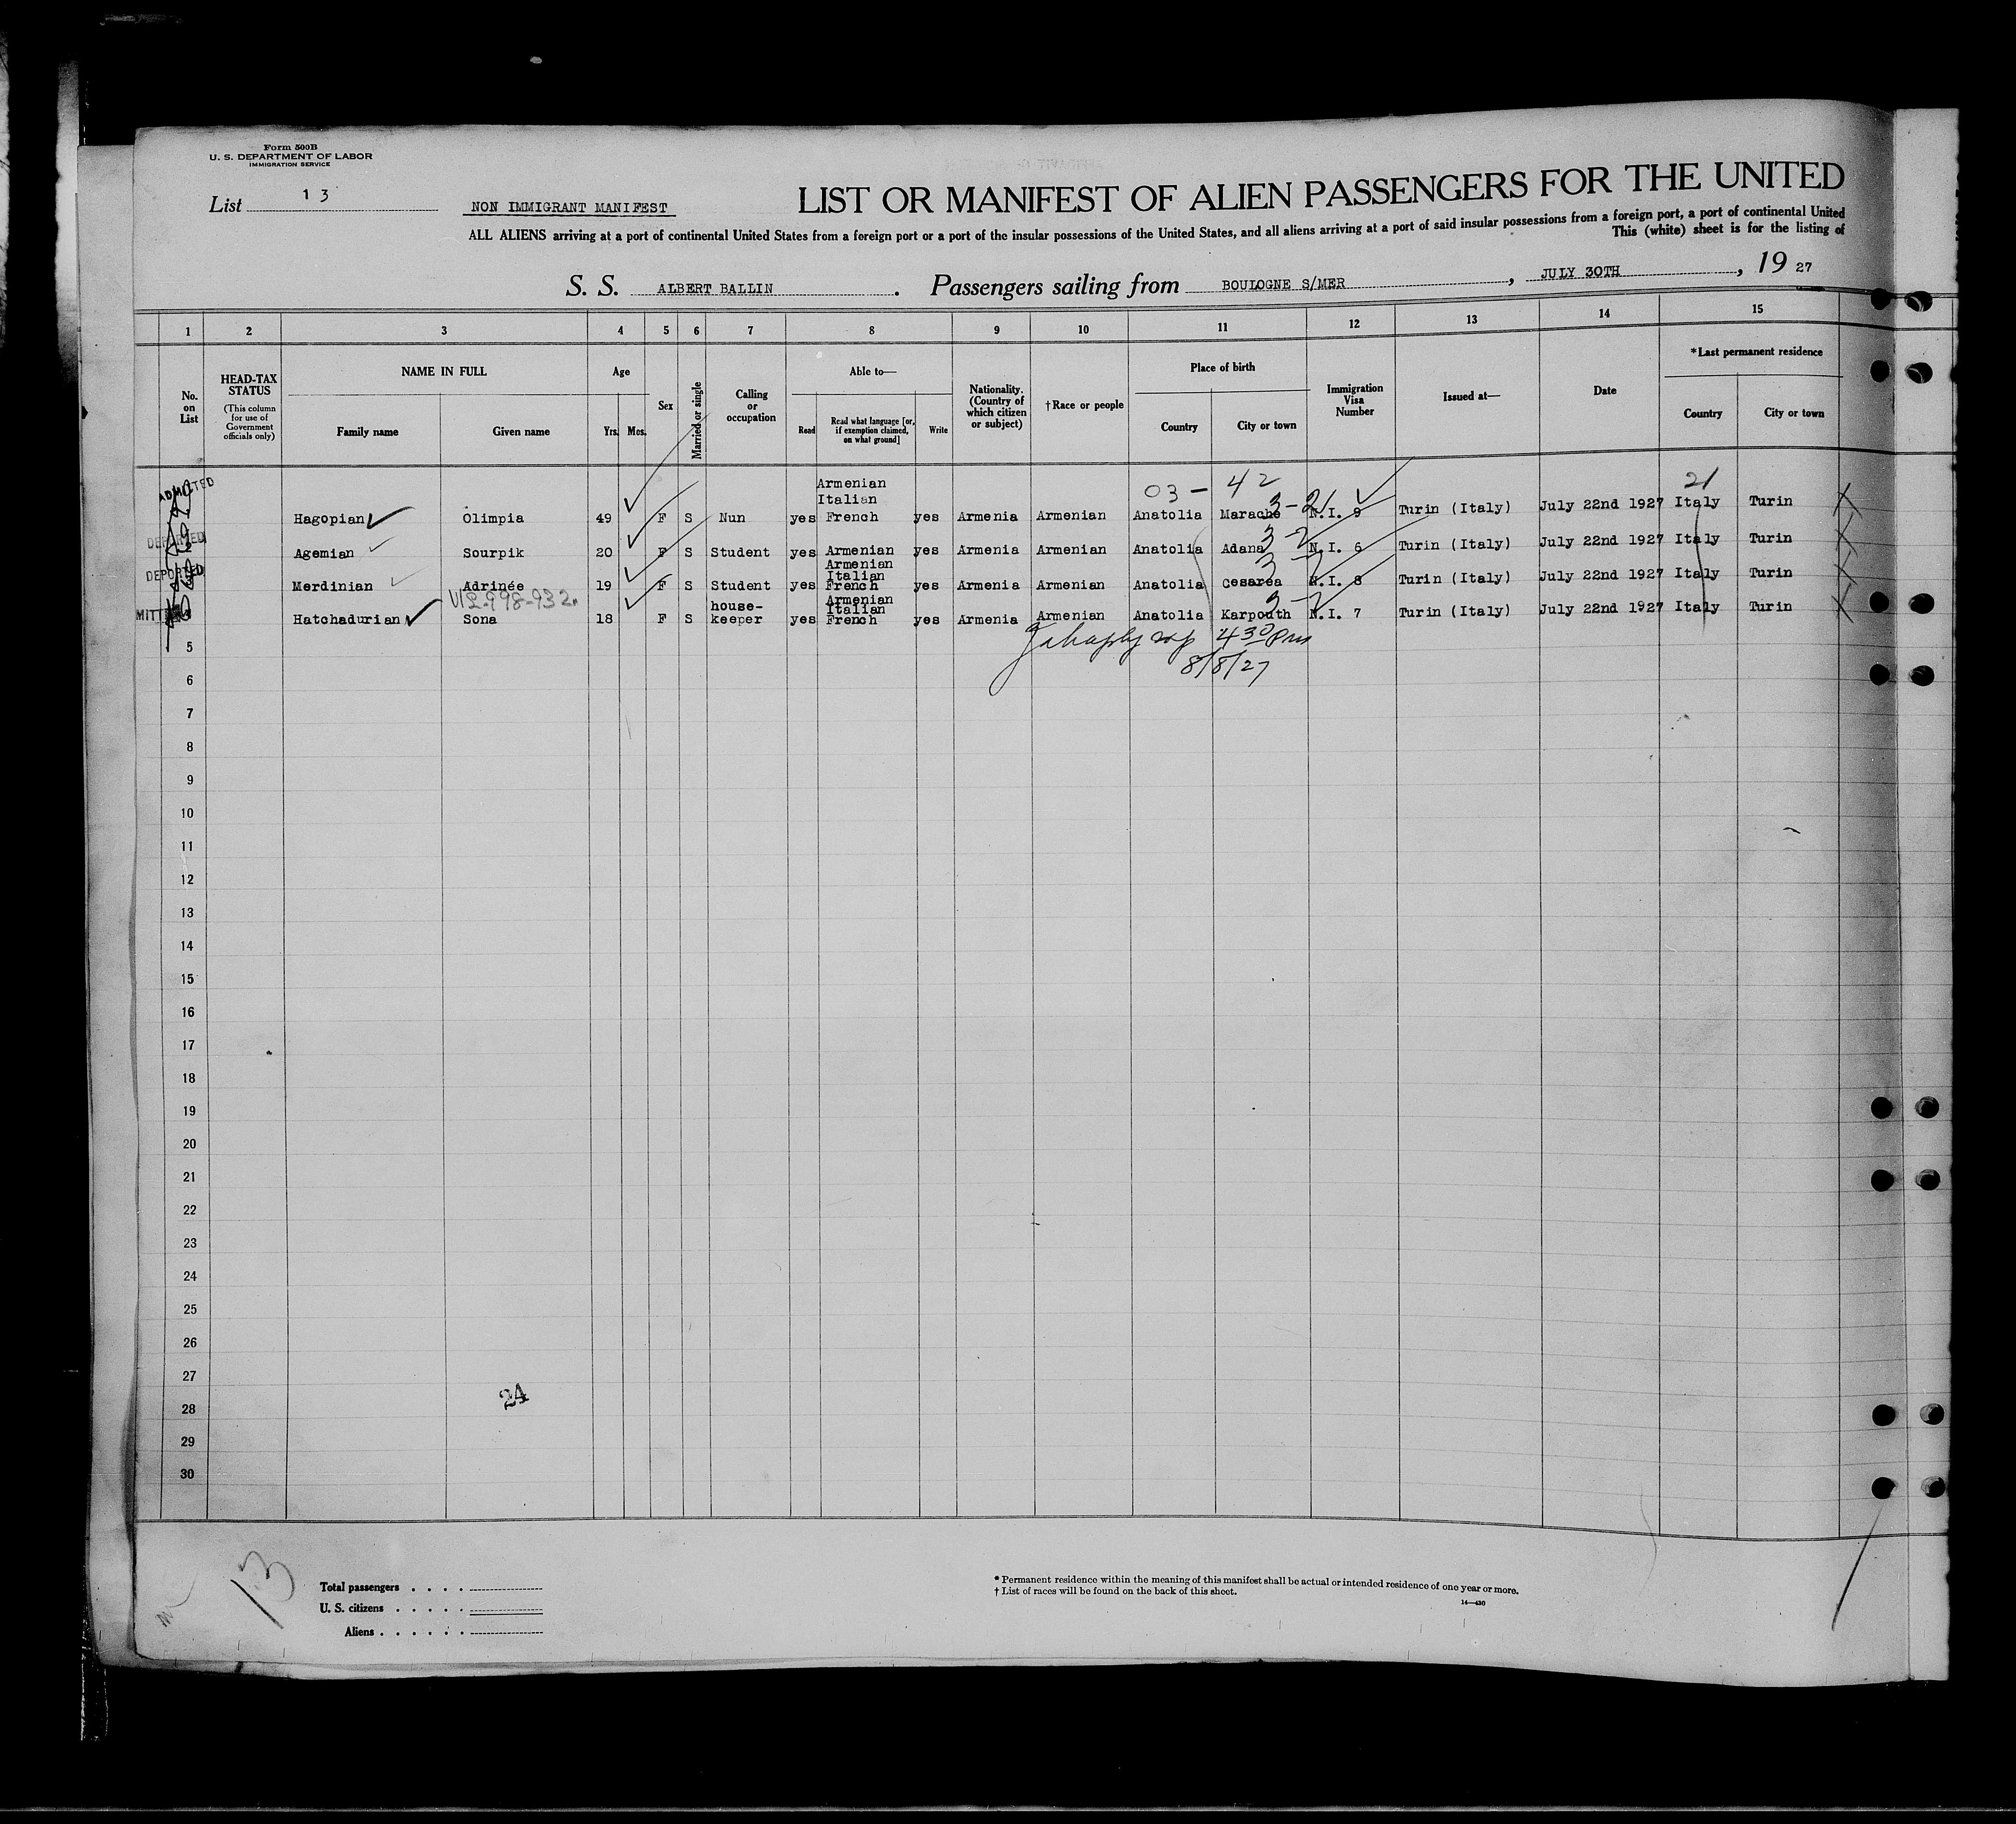 Form 500B
U. S. DEPARTMENT OF LABOR
IMMIGRATION SERVICE
List 13
NON IMMIGRANT MANIFEST
LIST OR MANIFEST OF ALIEN PASSENGERS FOR THE UNITED
ALL ALIENS arriving at a port of continental United States from a foreign port or a port of the insular possessions of the United States, and all aliens arriving at a port of said insular possessions from a foreign port, a port of continental United
This (white) sheet is for the listing of
S. S. ALBERT BALLIN. Passengers sailing from BOULOGNE S/MER, JULY 30TH, 1927
1 2 3 4 5 6 7 8 9 10 11 12 13 14 15
No. on List
HEAD-TAX STATUS
(This column for use of Government officials only)
NAME IN FULL
Family name Given name
Age
Yrs. Mos.
Sex
Married or single
Calling or occupation
Able to—
Read
Read what language [or, if exemption claimed, on what ground]
Write
Nationality. (Country of which citizen or subject)
†Race or people
Place of birth
Country City or town
Immigration Visa Number
Issued at—
Date
*Last permanent residence
Country City or town
03 - 42
21
ADMITTED
Hagopian Olimpia 49 F S Nun yes Armenian Italian French yes Armenia Armenian Anatolia Marache N.I. 9 Turin (Italy) July 22nd 1927 Italy Turin
DEPORTED
Agemian Sourpik 20 F S Student yes Armenian yes Armenia Armenian Anatolia Adana N.I. 6 Turin (Italy) July 22nd 1927 Italy Turin
DEPORTED
Merdinian Adrinée 19 F S Student yes Armenian Italian French yes Armenia Armenian Anatolia Cesarea N.I. 8 Turin (Italy) July 22nd 1927 Italy Turin
Hatchadurian Sona 18 F S house-keeper yes Armenian Italian French yes Armenia Armenian Anatolia Karpouth N.I. 7 Turin (Italy) July 22nd 1927 Italy Turin
430 Pm
8/8/27
5
6
7
8
9
10
11
12
13
14
15
16
17
18
19
20
21
22
23
24
25
26
27
28
29
30
24
13
Total passengers . . . .
U. S. citizens . . . . .
Aliens . . . . . .
* Permanent residence within the meaning of this manifest shall be actual or intended residence of one year or more.
† List of races will be found on the back of this sheet.
14—430